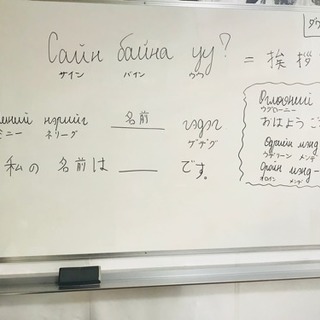 Сайн байна уу? = 挨拶
サイン バイン ウウ
нэрийг 名前 гэдэг
ミニー ネリーグ ゲデグ
私の 名前は ___ です。
Өглөөний
ウグローニー
おはよう
Өдрийн мэнд
ウドリーン メンデ
Оройн мэнд
オロイン メンデ